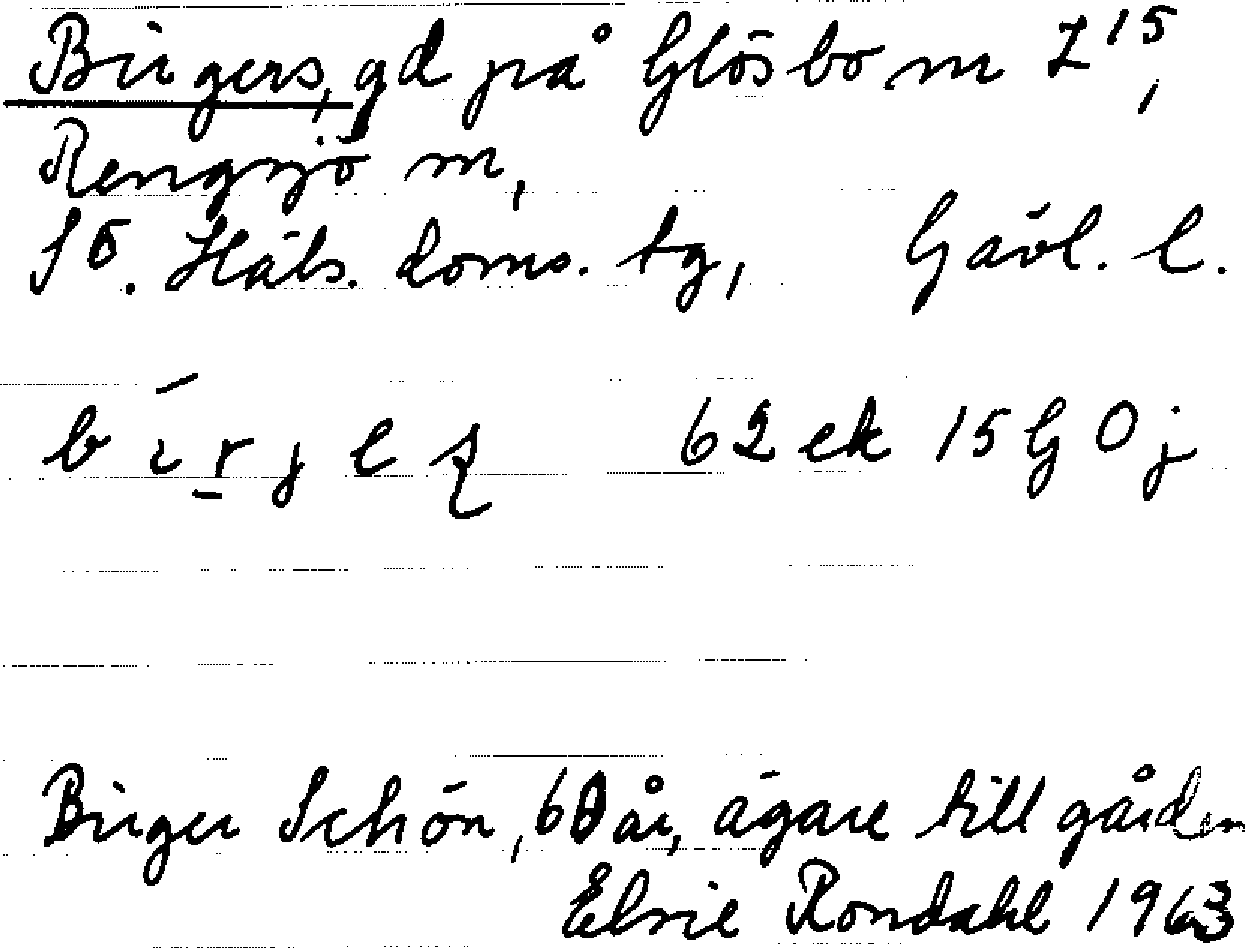 Birgers, gd på Glösbo m Z 15,
Rengsjö m,
SÖ. Häls. doms. tg, Gävl. l.
b í r j e s 62 ek 15 G 0 j
Birger Schön, 60 år, ägare till gården
Elsie Rondahl 1963